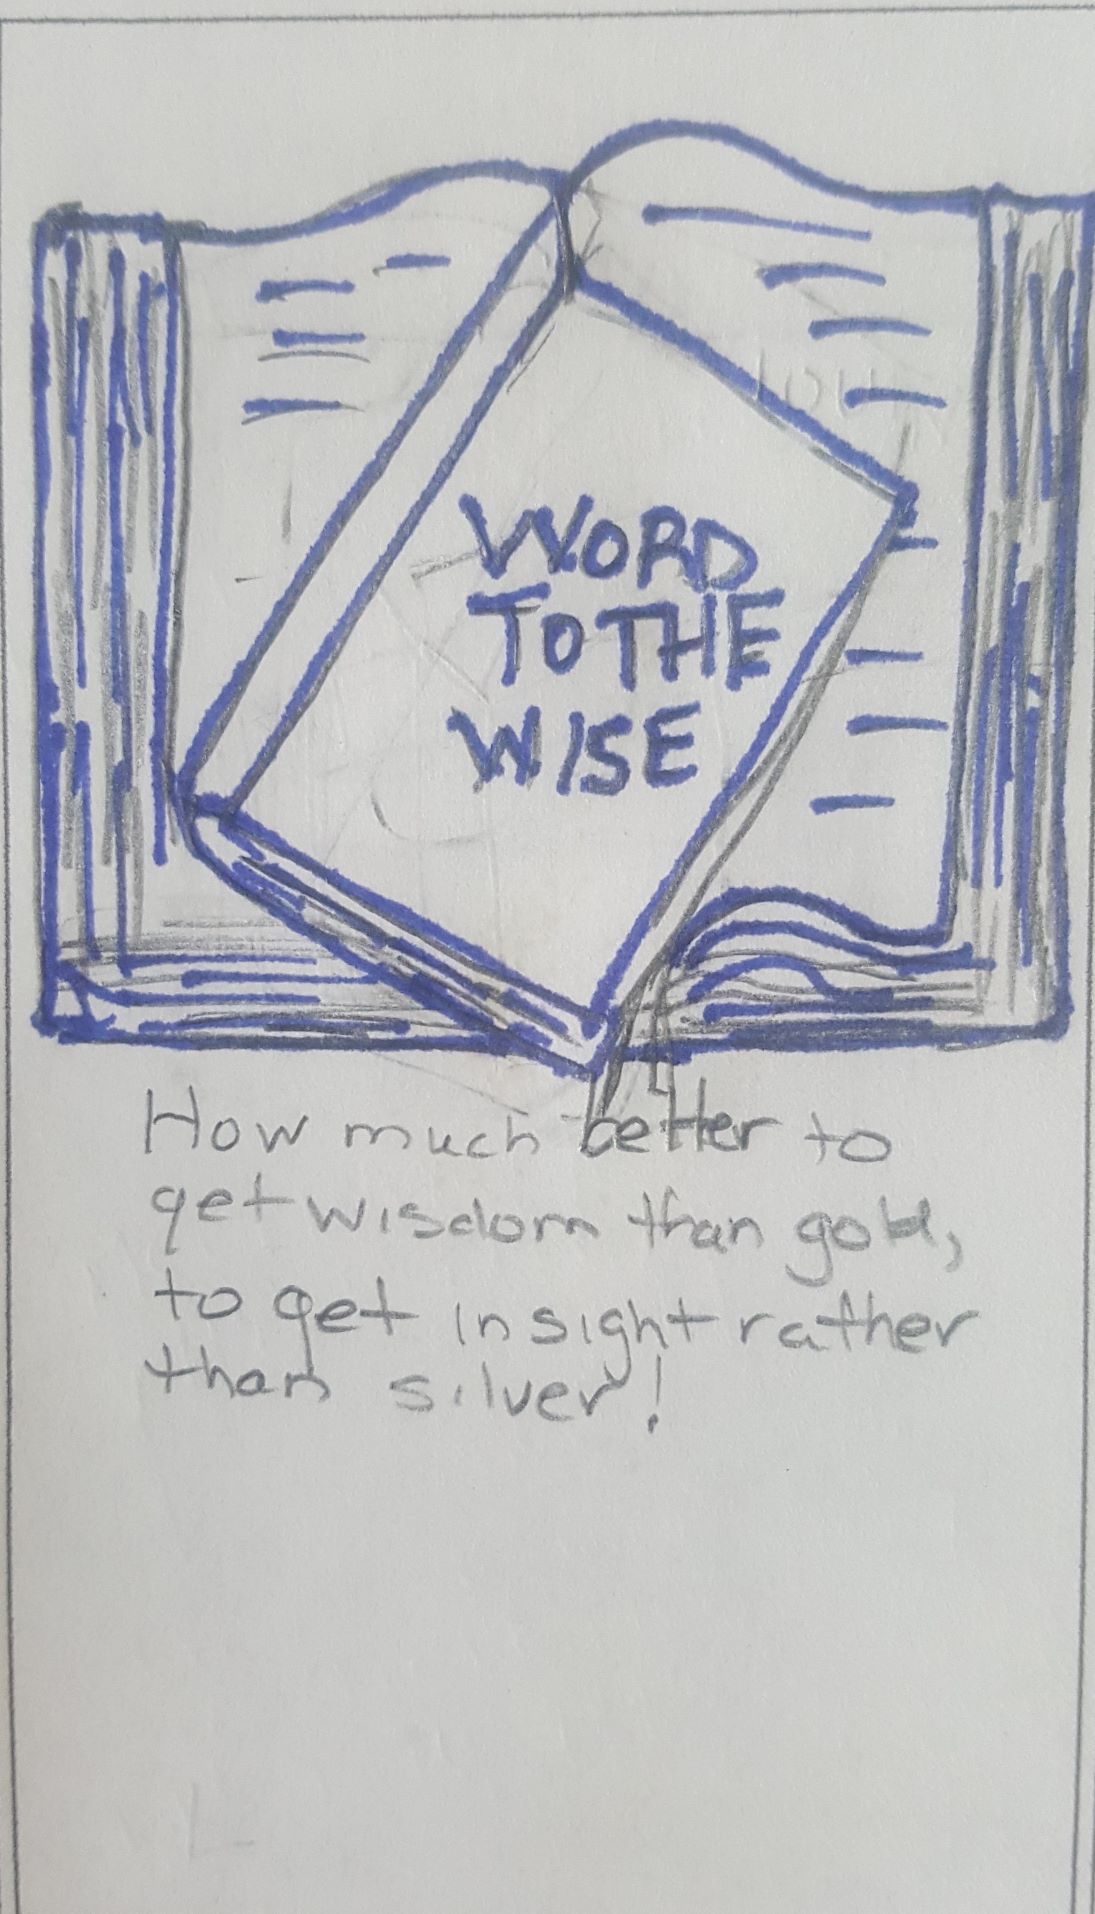 WORD
TO THE
WISE
How much better to
get wisdom than gold,
to get insight rather
than silver!